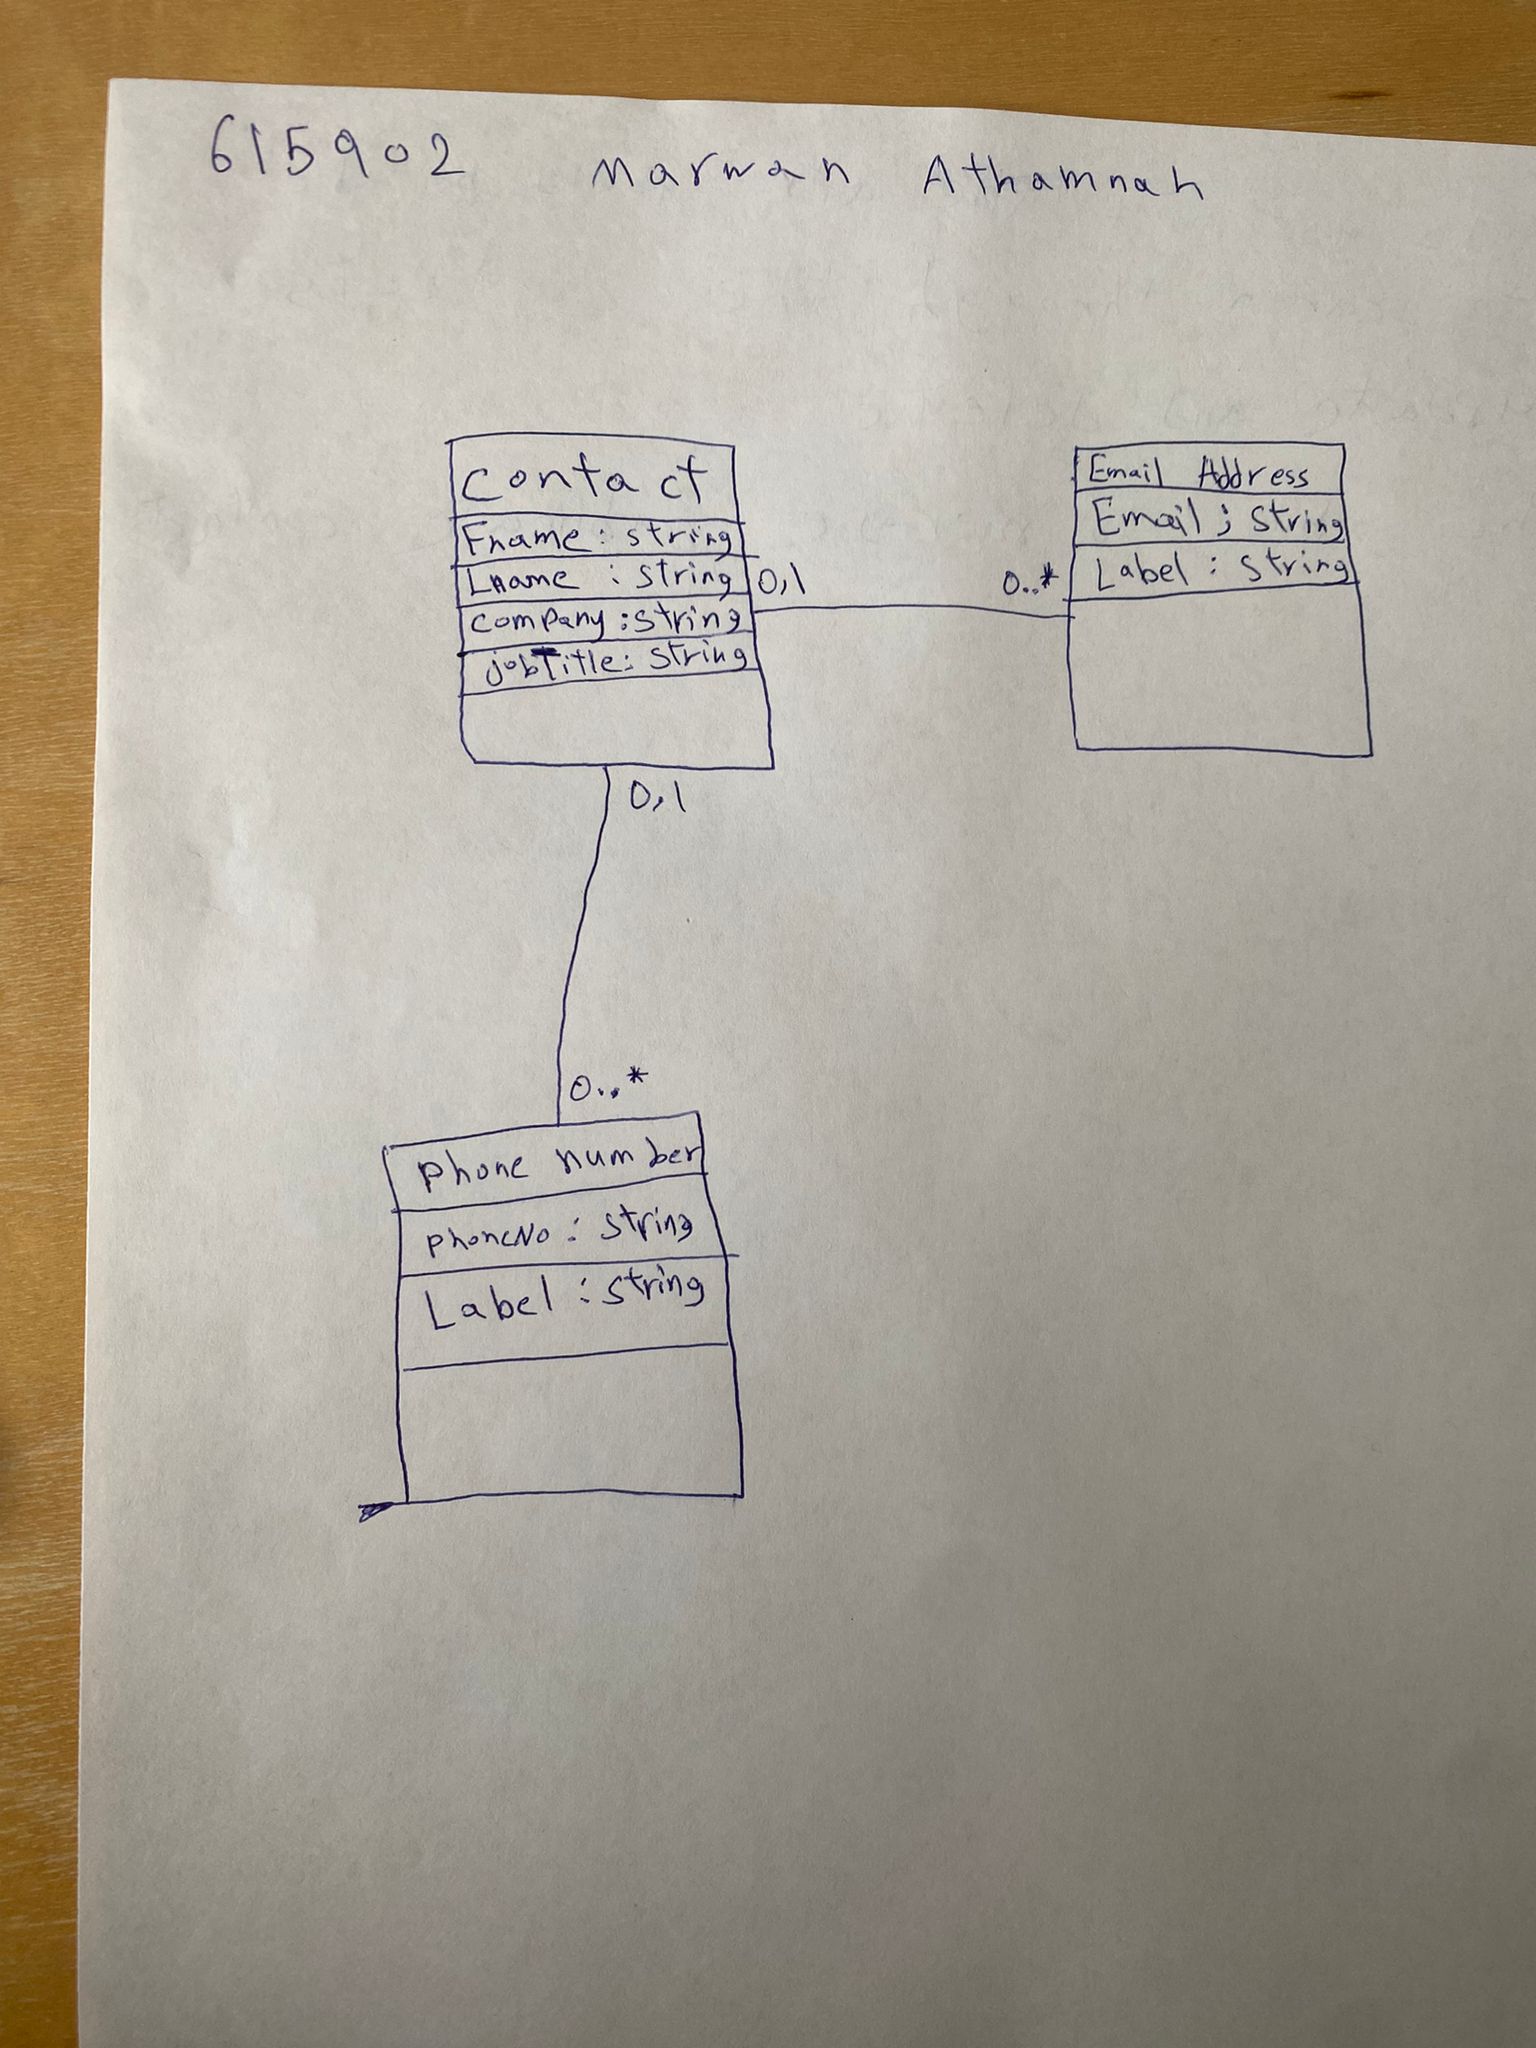 615902 Marwan Athamnah
contact
Fname : string
Lname : string
company : string
jobTitle : string
0,1
0..*
Email Address
Email ; string
Label : string
0,1
0..*
phone number
phoneNo : string
Label : string